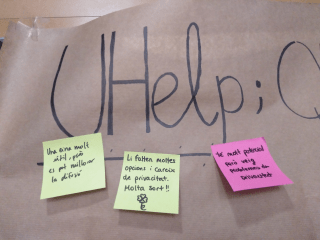 UHelp; Q
Una eina molt
útil, però
es pot millorar
la difusió
Li falten moltes
opcions i careix
de privacitat.
Molta sort!!
Té molt potencial
però veig
problemes de
privacitat